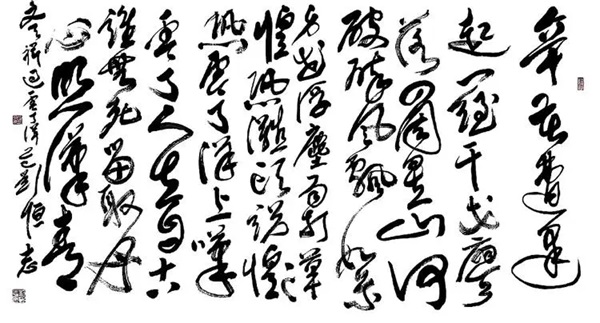 辛苦遭逢
起一經干戈寥
落四周星山河
破碎風飄絮
身世浮沉雨打萍
惶恐灘頭說惶
恐零丁洋上嘆
零丁人生自古
誰無死留取丹
心照汗青
文天祥過零丁洋 恒志